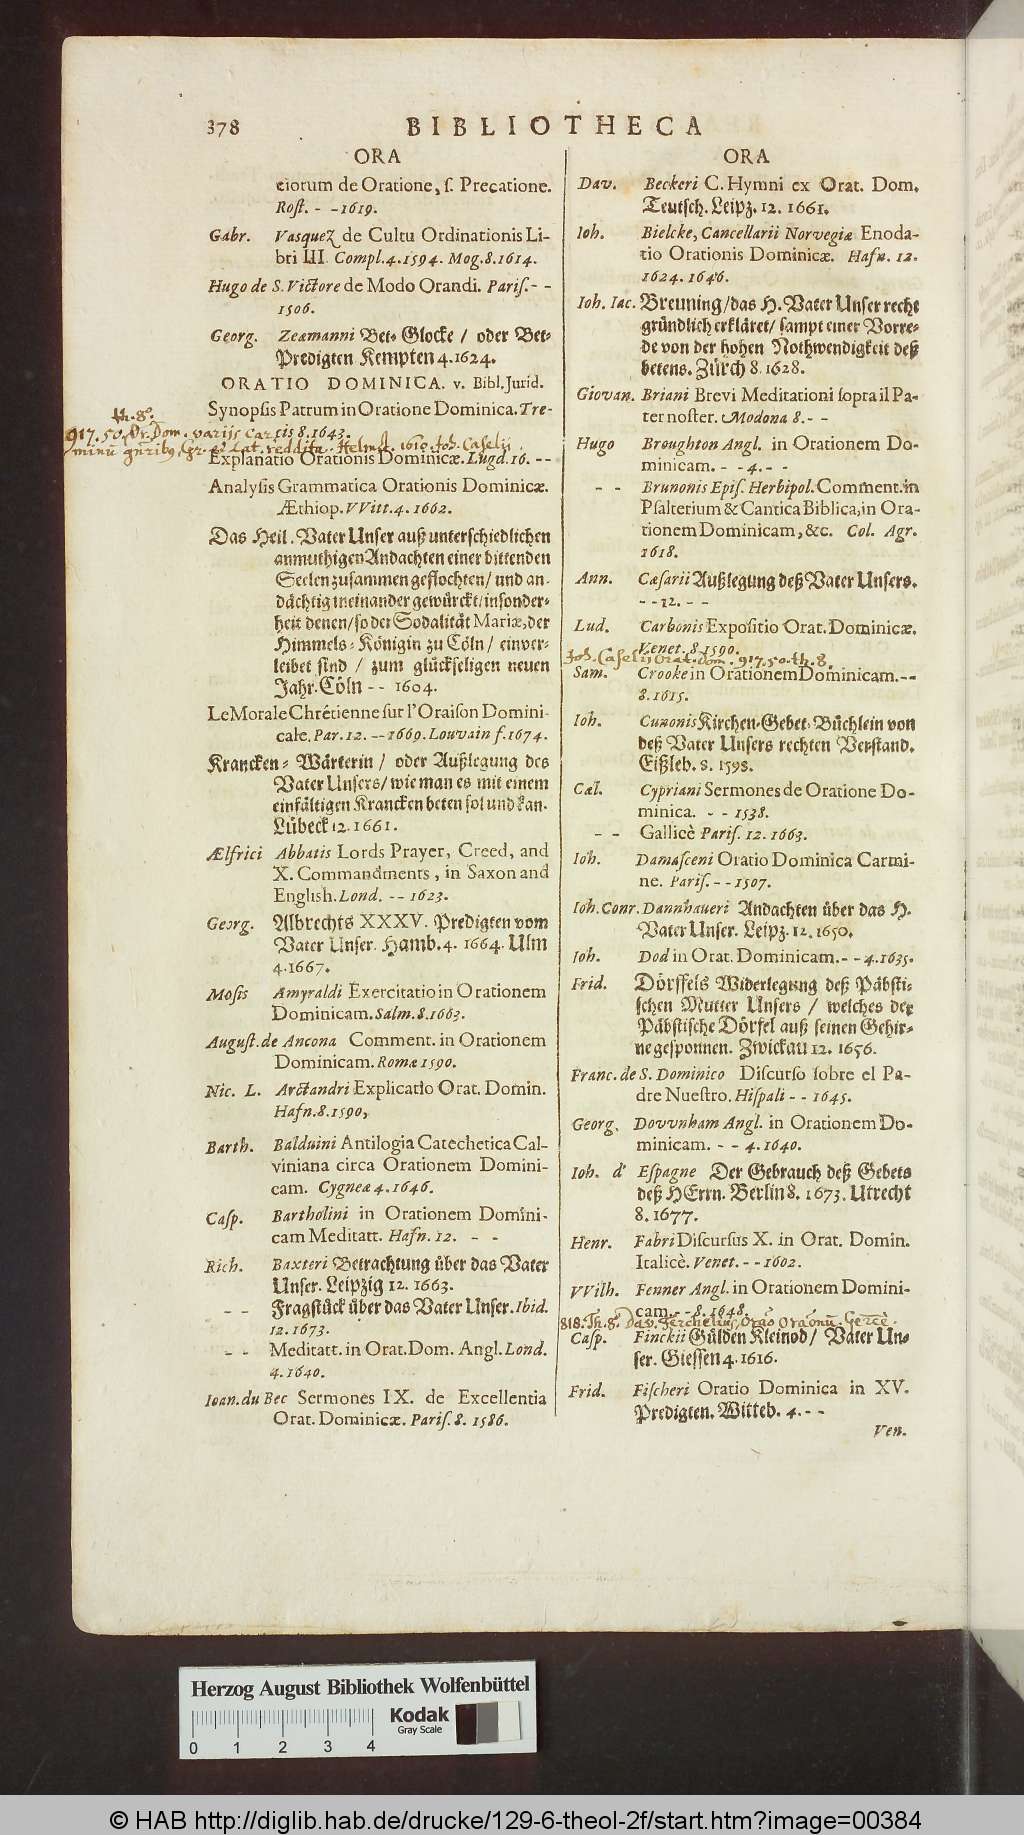 378
BIBLIOTHECA
ORA
ciorum de Oratione, s. Precatione.
Rost. - - 1619.
Gabr. Vasquez de Cultu Ordinationis Li-
bri III. Compl. 4. 1594. Mog. 8. 1614.
Hugo de S. Victore de Modo Orandi. Paris. - -
1506.
Georg. Zeamanni Bet- Glocke / oder Bet-
Predigten Kempten 4. 1624.
ORATIO DOMINICA. v. Bibl. Jurid.
Synopsis Patrum in Oratione Dominica. Tre-
th. 8º.
917. 50. Or. Dom. varijs Car
cis 8. 1643.
Helmst. 1610. Joh. Caselij
Explanatio Orationis Dominicæ. Lugd. 16. - -
Analysis Grammatica Orationis Dominicæ.
Æthiop. VVitt. 4. 1662.
Das Heil. Vater Unser auß unterschiedlichen
anmuthigen Andachten einer bittenden
Seelen zusammen geflochten / und an-
dächtig ineinander gewürckt / insonder-
heit denen / so der Sodalität Mariæ, der
Himmels-Königin zu Cöln / einver-
leibet sind / zum glückseligen neuen
Jahr. Cöln - - 1604.
Le Morale Chrétienne sur l'Oraison Domini-
cale. Par. 12. - - 1669. Louvain f. 1674.
Krancken- Wärterin / oder Außlegung des
Vater Unsers / wie man es mit einem
einfältigen Krancken beten sol und kan.
Lübeck 12. 1661.
Ælfrici Abbatis Lords Prayer, Creed, and
X. Commandments, in Saxon and
English. Lond. - - 1623.
Georg. Albrechts XXXV. Predigten vom
Vater Unser. Hamb. 4. 1664. Ulm
4. 1667.
Mosis Amyraldi Exercitatio in Orationem
Dominicam. Salm. 8. 1663.
August. de Ancona Comment. in Orationem
Dominicam. Romæ 1590.
Nic. L. Arctandri Explicatio Orat. Domin.
Hafn. 8. 1590,
Barth. Balduini Antilogia Catechetica Cal-
viniana circa Orationem Domini-
cam. Cygneæ 4. 1646.
Casp. Bartholini in Orationem Domini-
cam Meditatt. Hafn. 12. - -
Rich. Baxteri Betrachtung über das Vater
Unser. Leipzig 12. 1663.
- - Fragstück über das Vater Unser. Ibid.
12. 1673.
- - Meditatt. in Orat. Dom. Angl. Lond.
4. 1640.
Ioan. du Bec Sermones IX. de Excellentia
Orat. Dominicæ. Paris. 8. 1586.
ORA
Dav. Beckeri C. Hymni ex Orat. Dom.
Teutsch. Leipz. 12. 1661.
Ioh. Bielcke, Cancellarii Norvegiæ Enoda-
tio Orationis Dominicæ. Hafn. 12.
1624. 1646.
Ioh. Iac. Breuning / das H. Vater Unser recht
gründlich erkläret / sampt einer Vorre-
de von der hohen Nothwendigkeit deß
betens. Zürch 8. 1628.
Giovan. Briani Brevi Meditationi sopra il Pa-
ter noster. Modona 8. - -
Hugo Broughton Angl. in Orationem Do-
minicam. - - 4. - -
- - Brunonis Epis. Herbipol. Comment. in
Psalterium & Cantica Biblica, in Ora-
tionem Dominicam, &c. Col. Agr.
1618.
Ann. Cæsarii Außlegung deß Vater Unsers.
- - 12. - -
Lud. Carbonis Expositio Orat. Dominicæ.
Venet. 8. 1590.
Joh. Caselij Orat. Dom. 917. 50. th. 8.
Sam. Crooke in Orationem Dominicam. - -
8. 1615.
Ioh. Cunonis Kirchen-Gebet-Büchlein von
deß Vater Unsers rechten Verstand.
Eißleb. 8. 1598.
Cæl. Cypriani Sermones de Oratione Do-
minica. - - 1538.
- - Gallicè Paris. 12. 1663.
Ioh. Damasceni Oratio Dominica Carmi-
ne. Paris. - - 1507.
Ioh. Conr. Dannhaueri Andachten über das H.
Vater Unser. Leipz. 12. 1650.
Ioh. Dod in Orat. Dominicam. - - 4. 1635.
Frid. Dörffels Widerlegung deß Päbsti-
schen Mutter Unsers / welches der
Päbstische Dörfel auß seinen Gehir-
ne gesponnen. Zwickau 12. 1656.
Franc. de S. Dominico Discurso sobre el Pa-
dre Nuestro. Hispali - - 1645.
Georg. Dovvnham Angl. in Orationem Do-
minicam. - - 4. 1640.
Ioh. d' Espagne Der Gebrauch deß Gebets
deß HErrn. Berlin 8. 1673. Utrecht
8. 1677.
Henr. Fabri Discursus X. in Orat. Domin.
Italicè. Venet. - - 1602.
VVilh. Fenner Angl. in Orationem Domini-
cam. - - 8. 1648.
818. Th. 8. Dav.
Casp. Finckii Gülden Kleinod / Vater Un-
ser. Giessen 4. 1616.
Frid. Fischeri Oratio Dominica in XV.
Predigten. Witteb. 4. - -
Ven.
Herzog August Bibliothek Wolfenbüttel
Kodak
Gray Scale
0 1 2 3 4
© HAB http://diglib.hab.de/drucke/129-6-theol-2f/start.htm?image=00384